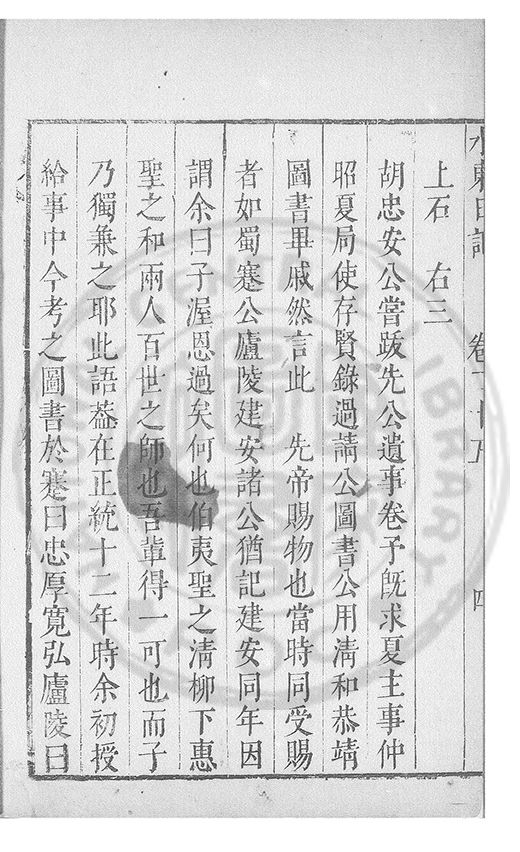 水東日記 卷 十五 四
上石 右三
胡忠安公嘗跋先公遺事卷予旣求夏主事仲
昭夏局使存賢錄過請公圖書公用淸和恭靖
圖書畢戚然言此 先帝賜物也當時同受賜
者如蜀蹇公廬陵建安諸公猶記建安同年因
謂余曰子渥恩過矣何也伯夷聖之淸柳下惠
聖之和兩人百世之師也吾輩得一可也而子
乃獨兼之耶此語葢在正統十二年時余初授
給事中今考之圖書於蹇曰忠厚寬弘廬陵曰